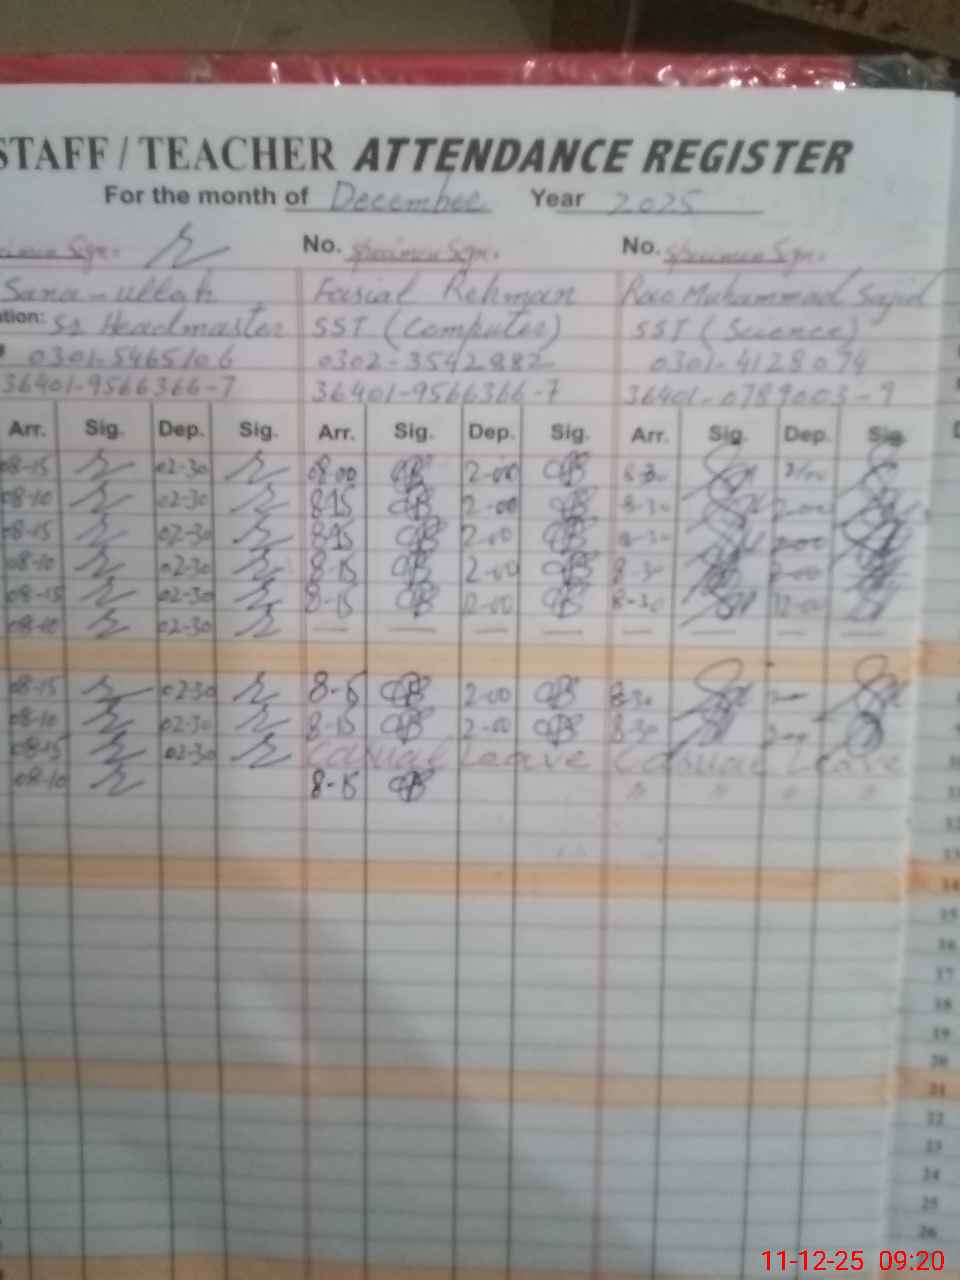 STAFF / TEACHER ATTENDANCE REGISTER
For the month of December Year 2025
Sign. No. Specimen Sgn. No. Specimen Sgn.
Sana-ullah Fasial Rehman Rao Muhammad Sajid
tion: SS Headmaster SST (Computer) SST (Science)
0301-5465106 0302-3542882 0301-4128074
36401-9566366-7 36401-9566366-7 36401-0789003-9
Arr. Sig. Dep. Sig. Arr. Sig. Dep. Sig. Arr. Sig. Dep. Sig.
08-15 02-30 08-00 2-00 8-30
08-10 02-30 8-15 2-00 8-30 2-00
08-15 02-30 8-15 2-00 8-30 2-00
08-10 02-30 8-15 2-00 8-30 2-00
08-15 02-30 8-15 12-00 8-30 12-00
08-10 02-30 — — — — — — — —
08-15 02-30 8-15 2-00 8-30
08-10 02-30 8-15 2-00 8-30
08-15 02-30 Casual Leave Casual Leave
08-10 8-15 " " " " 11
12
13
14
15
16
17
18
19
20
21
22
23
24
25
26
11-12-25 09:20